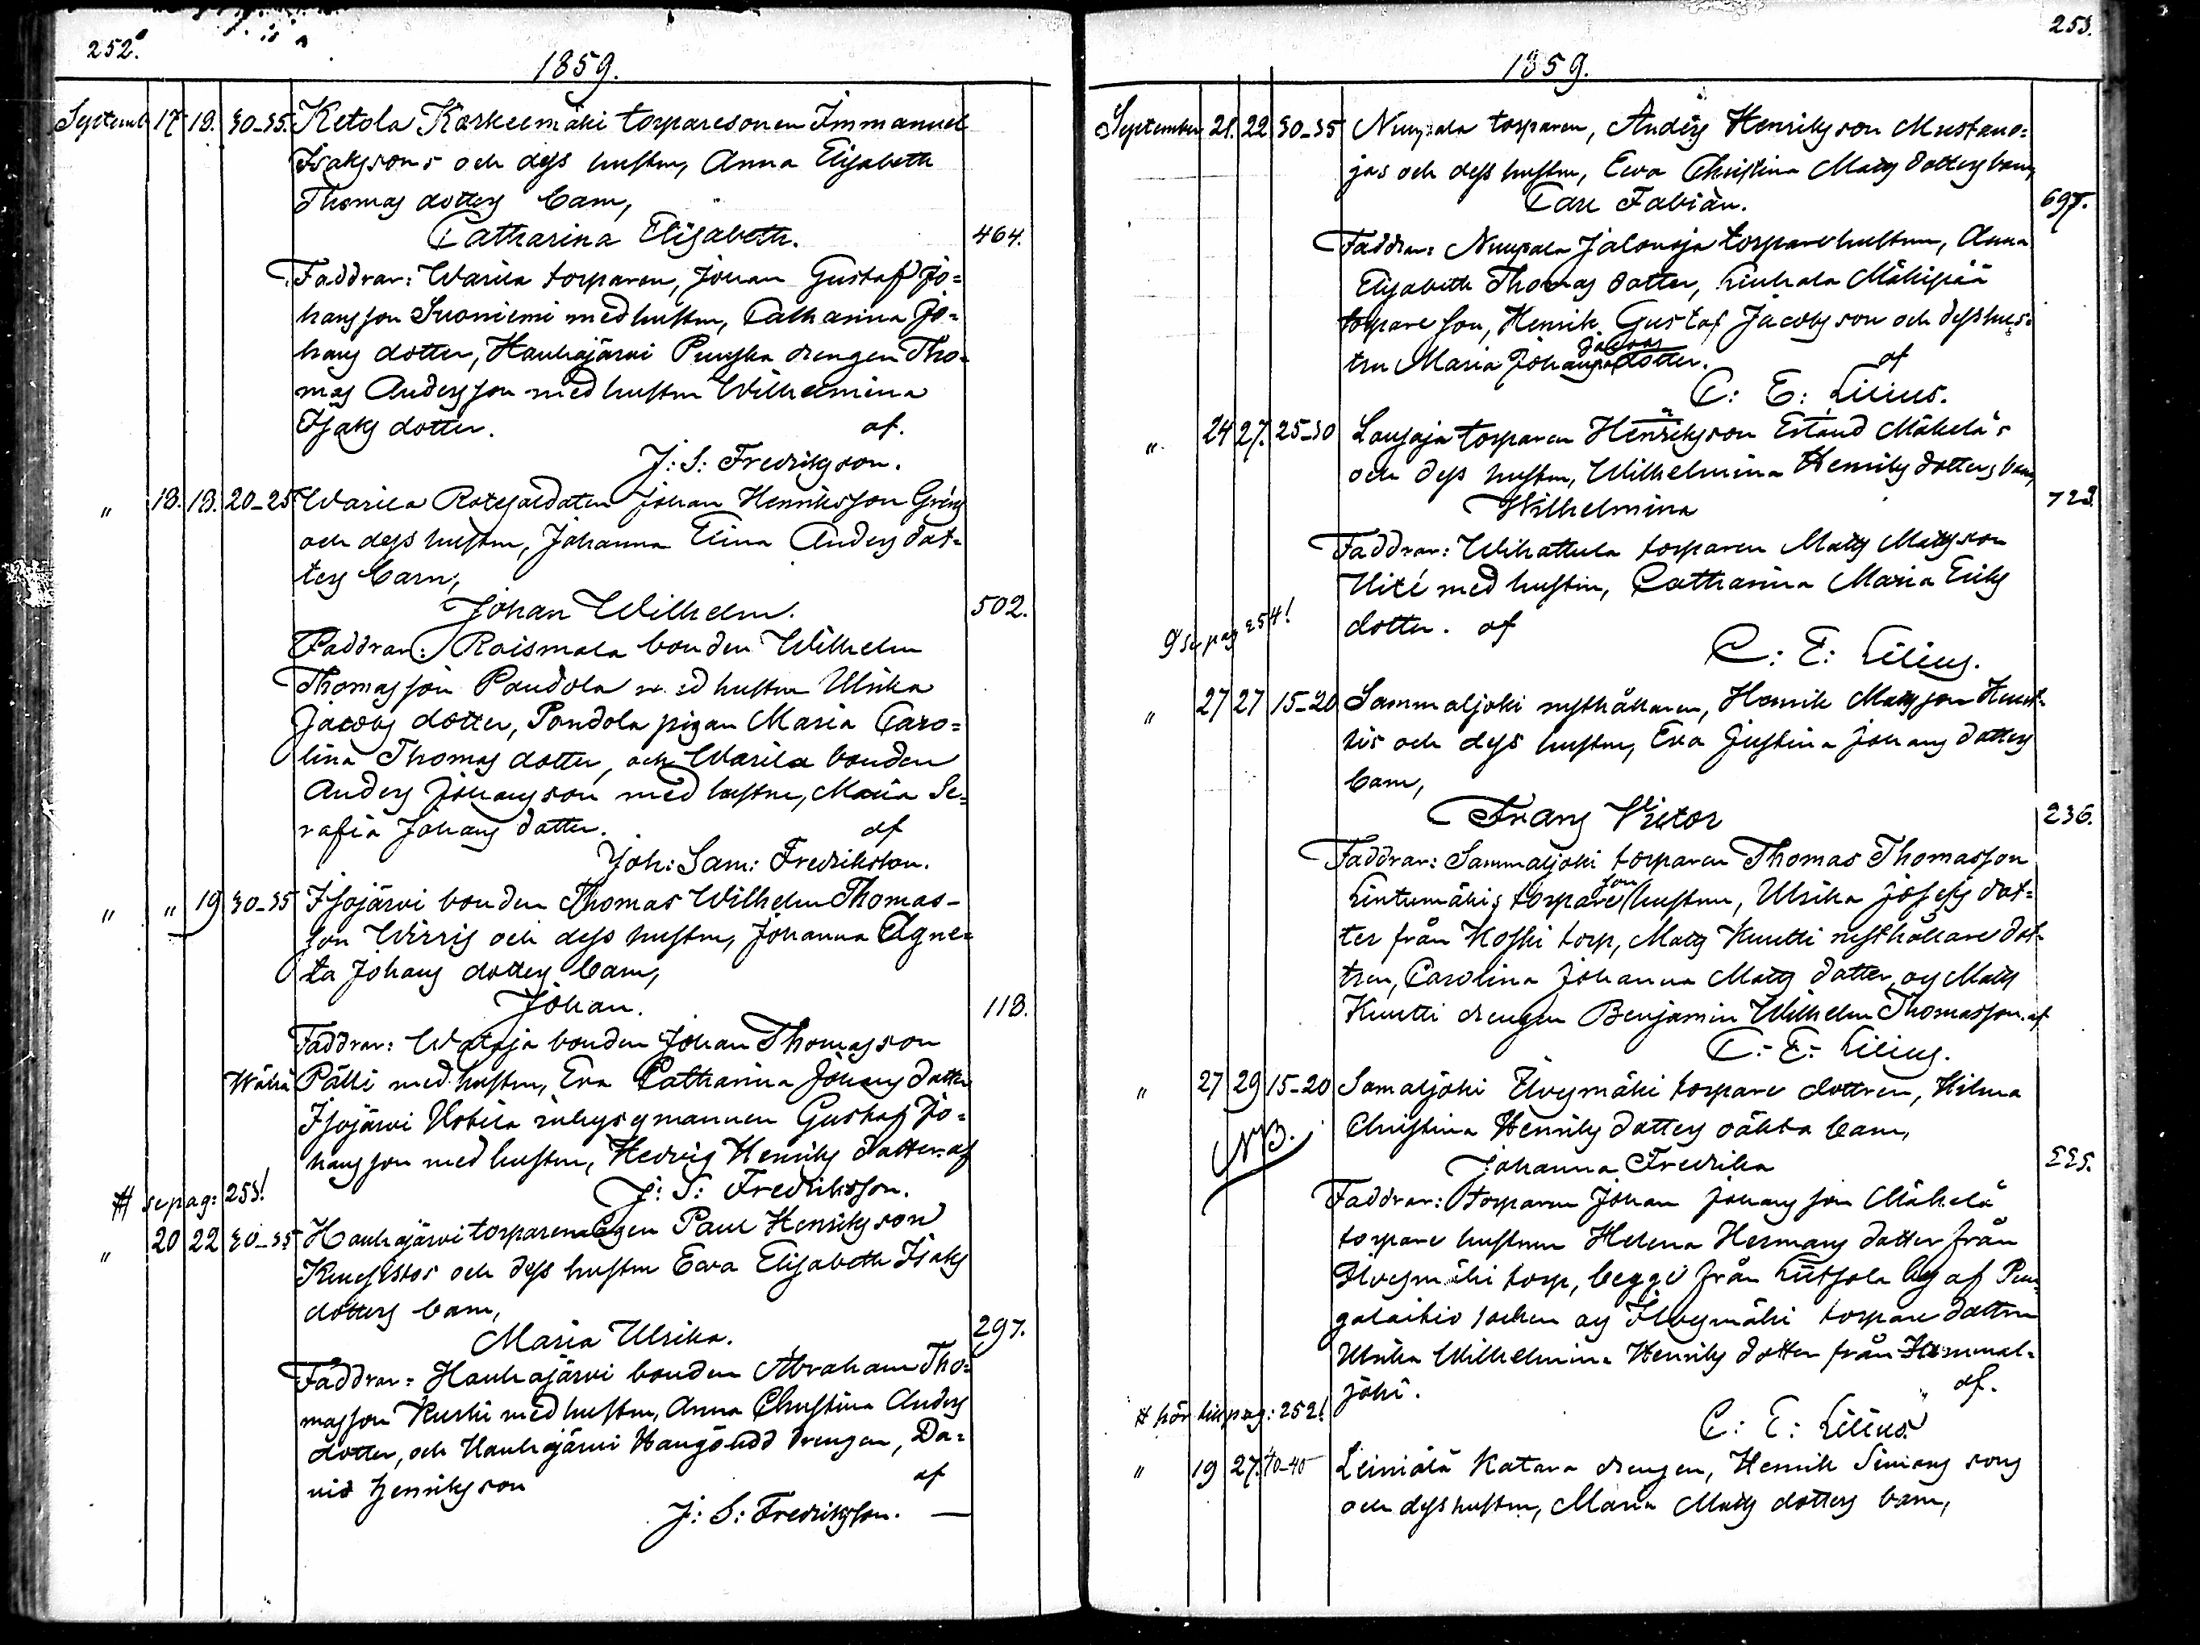 252.
1859.
Septemb 17 18. 30-35. Ketola Karkeemäki torparesonen Immanuel
Isaksons och dess hustru, Anna Elisabeth
Thomas dotters barn,
Catharina Elisabeth. 464.
Faddrar: Warila torparen, Johan Gustaf Jo=
hansson Suoniemi med hustru, Catharina Jo=
hans dotter, Hauhajärvi drengen Tho=
mas Andersson med hustru Wilhelmina
Isaks dotter. af.
J: S: Fredrikson.
" 18. 18. 20-25 Warila Rotesoldaten Johan Henriksson
och dess hustru, Johanna Elina Anders dot=
ters barn,
Johan Wilhelm. 502.
Faddrar: Roismala bonden Wilhelm
Thomasson Pondola med hustru Ulrika
Jacobs dotter, Pondola pigan Maria Caro=
lina Thomas dotter, och Warila bonden
Anders Johansson med hustru, Maria Se=
rafia Johans dotter. af
Joh: Sam: Fredrikson.
" " 19 30-35 Isojärvi bonden Thomas Wilhelm Thomas-
son Wirris och dess hustru, Johanna Agne=
ta Johans dotters barn,
Johan. 118.
Faddrar: Wataja bonden Johan Thomasson
Wähä Pälli med hustru, Eva Catharina Johans dotter
Isojärvi inhysqmannen Gustaf Jo=
hansson med hustru, Hedvig Henriks dotter. af
J: S: Fredriksson.
# se pag: 253!
" 20 22 30-35 Hauhajärvi torparen Paul Henrikson
och dess hustru Eva Elisabeth Isaks
dotters barn,
Maria Ulrika. 297.
Faddrar: Hauhajärvi bonden Abraham Tho=
masson med hustru, Anna Christina Anders
dotter, och Hauhajärvi drengen, Da=
vid Henrikson af
J: S: Fredrikson. —
253.
1859.
September 21. 22 30-35 Nuupala torparen, Anders Henrikson Mustano=
jas och dess hustru, Eva Christina Mats dotters barn,
Carl Fabian. 697.
Faddrar: Nuupala Jalonoja torparehustrun, Anna
Elisabeth Thomas dotter, Kiukala Mäkipää
torpare son, Henrik Gustaf Jacobsson och dess hus=
tru Maria Johans Jacobs dotter. af
C: E: Lilius.
" 24 27. 25-30 Lausaja torparen Henrikson Mäkelä's
och dess hustru, Wilhelmina Henriks dotters barn,
Wilhelmina 723.
Faddrar: Wihattula torparen Mats Matsson
med hustru, Catharina Maria Eriks
dotter. af
C: E: Lilius.
se pag 254!
" 27 27 15-20 Sammaljoki rusthållaren, Henrik Matsson
och dess hustru, Eva Justina Johans dotters
barn,
Frans Viktor 236.
Faddrar: Sammaljoki torparen Thomas Thomasson
torpare son hustrun, Ulrika Josefs dot=
ter från Koski torp, Mats Knutti rusthållare dot=
tren, Carolina Johanna Mats dotter, og Mats
Knutti drengen Benjamin Wilhelm Thomasson. af
C: E: Lilius.
" 27 29 15-20 Samaljoki Ilvesmäki torpare dottren, Hilma
NB. Christina Henriks dotters oäkta barn,
Johanna Fredrika 225.
Faddrar: torparen Johan Johansson Mäkelä
torpare hustrun Helena Hermans dotter från
Ilvesmäki torp, begge från by af Pun=
galaitio socken og Ilvesmäki torpare dottren
Ulrika Wilhelmina Henriks dotter från Sammal=
joki. af.
C: E: Lilius.
# hör till pag: 252!
" 19 27. 40-40 Leiniälä Katara drengen, Henrik Simons sons
och dess hustru, Maria Mats dotters barn,